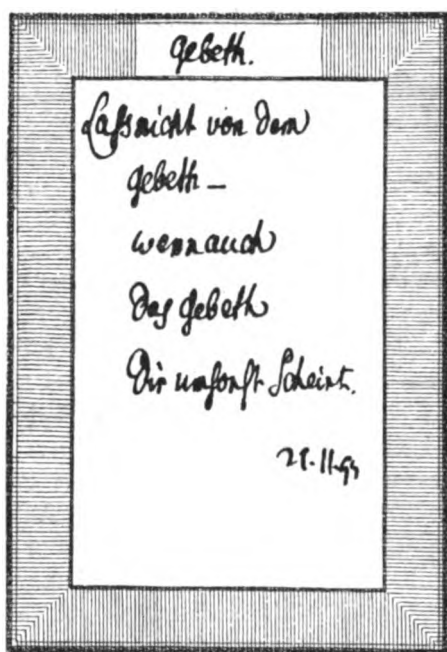 Gebeth.
Laß nicht von dem
Gebeth –
wenn auch
Das Gebeth
Dir umsonst Scheint.